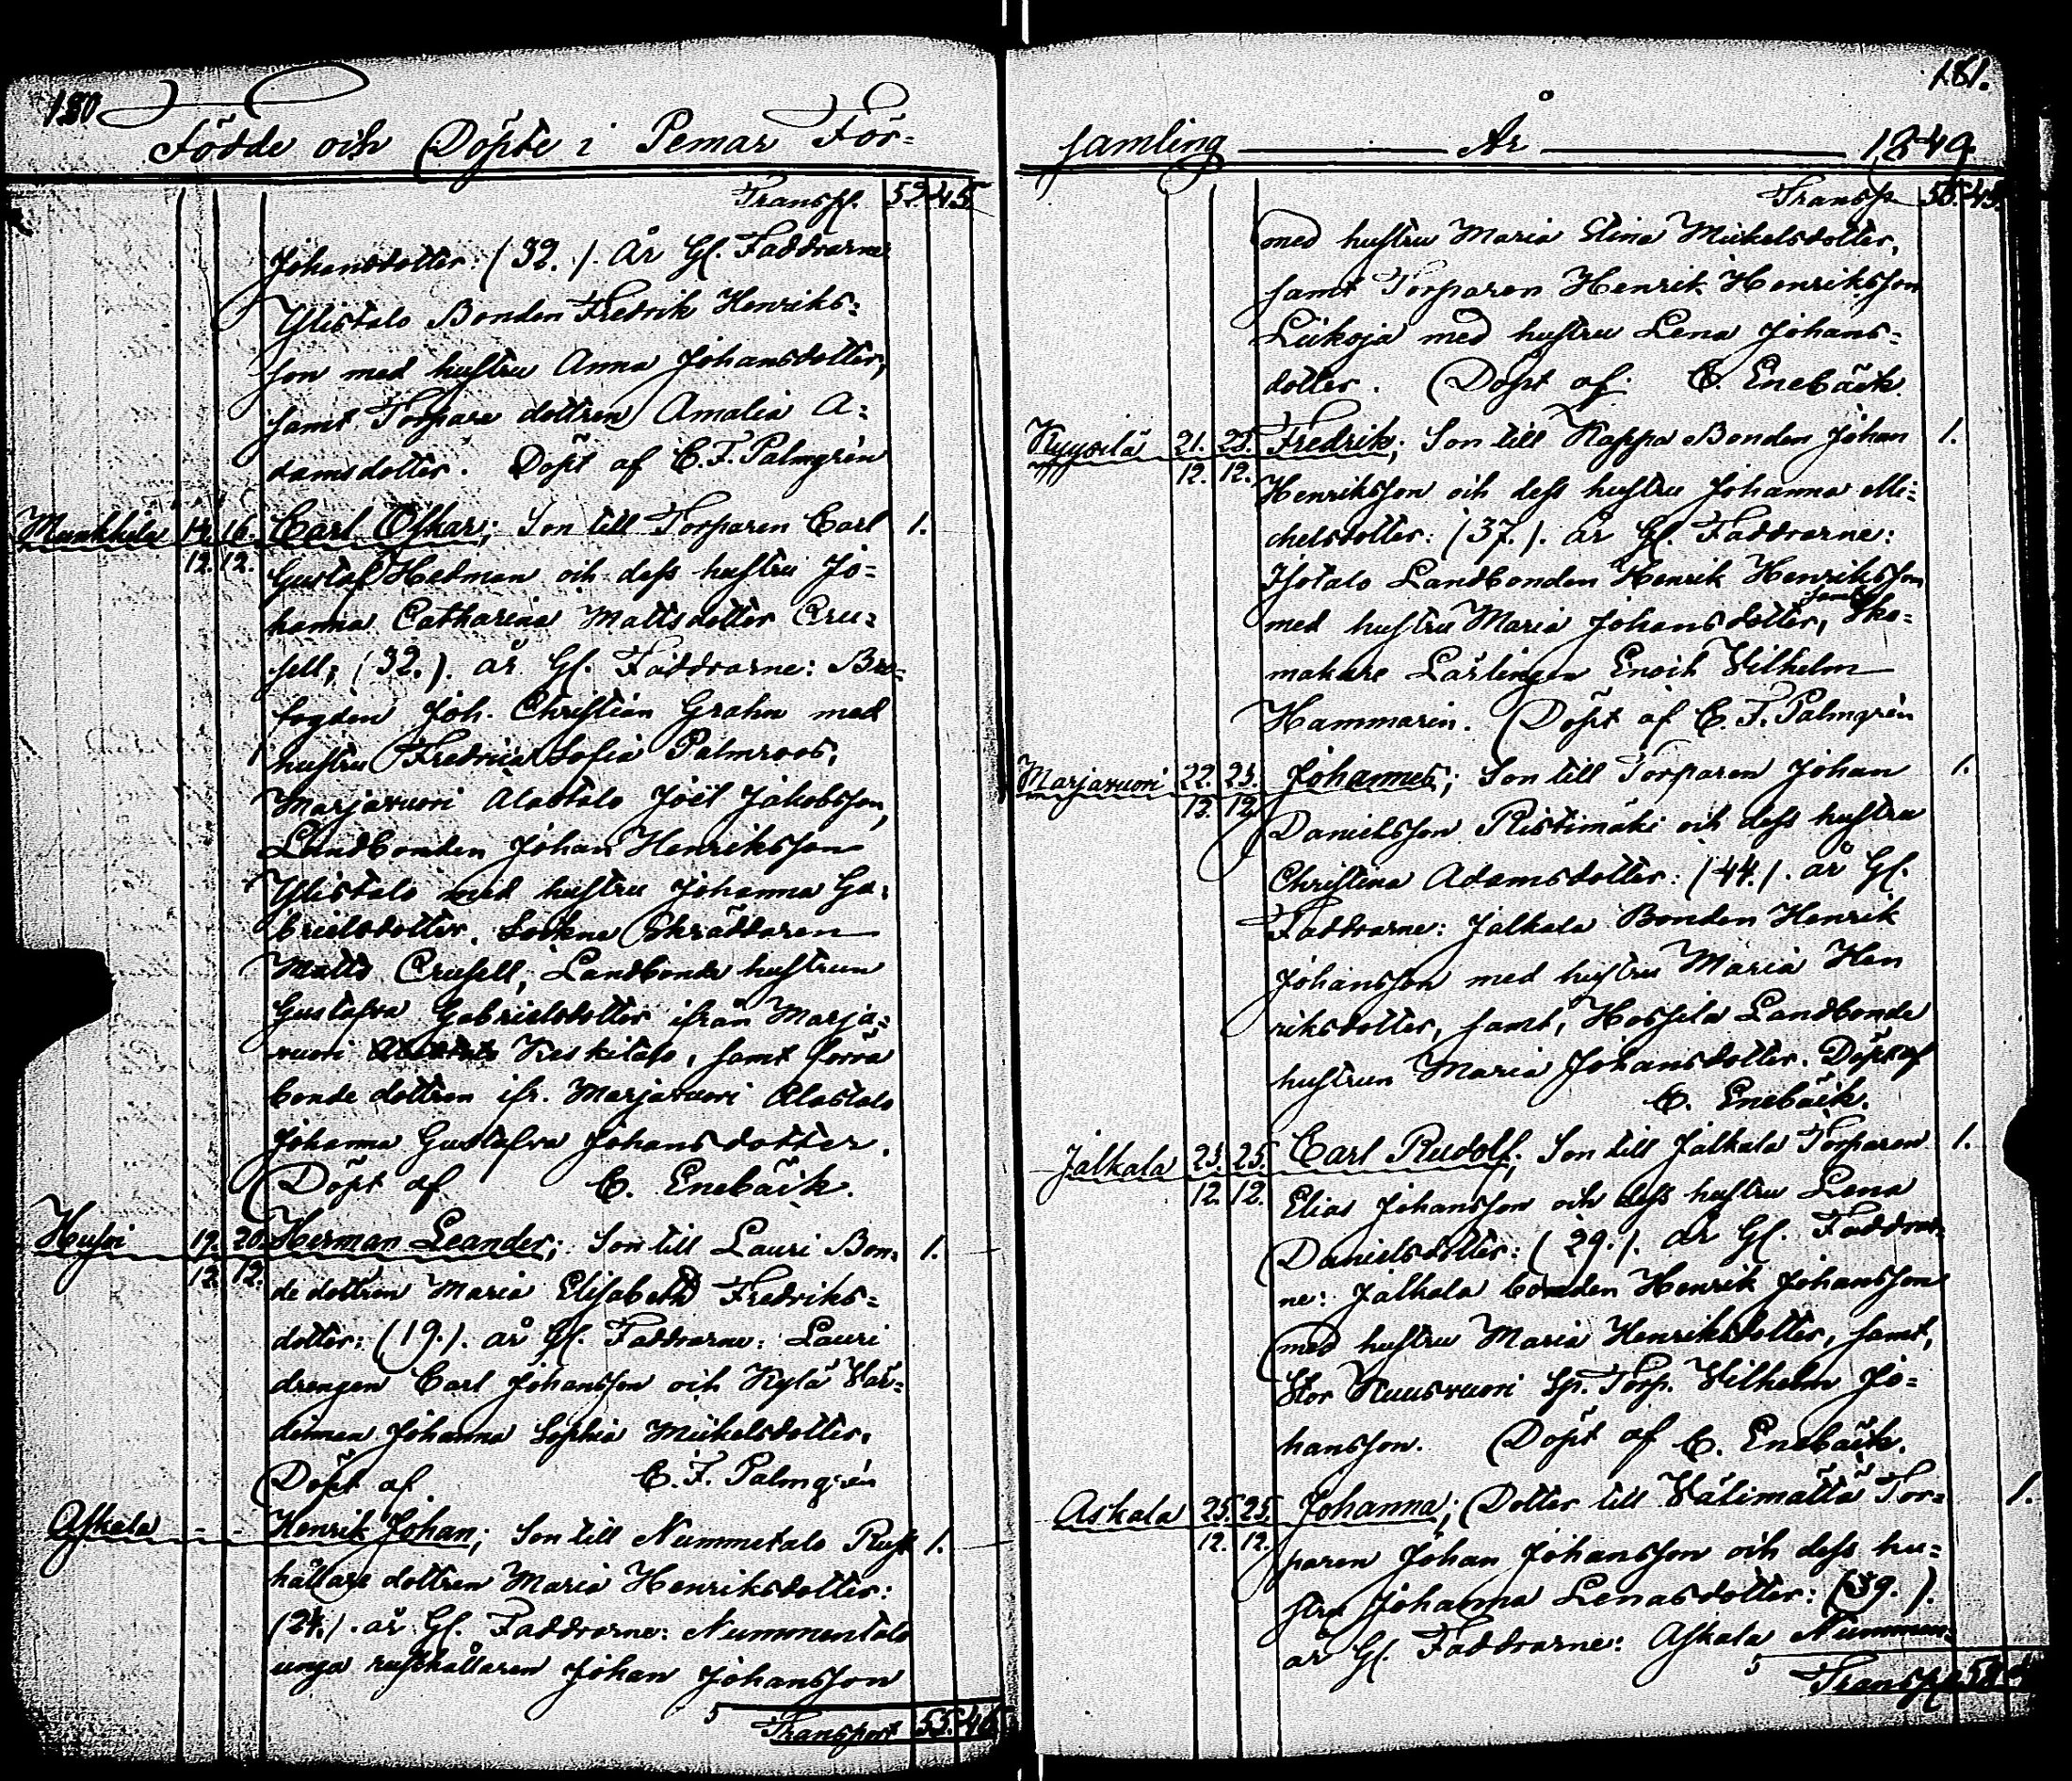 180
Födde och Döpte i Pemar För-
Transp. 52. 45.
Johansdotter: (32.). År Gl. Faddrarne
Ylistalo Bonden Fredrik Henriks-
son med hustru Anna Johansdotter,
samt Torpare dottren Amalia A-
damsdotter. Döpt af C. F. Palmgrén
Munkkila 14. 16. Carl Oskar; Son till Torparen Carl 1.
12. 12. Gustaf Hedman och dess hustru Jo-
hanna Catharina Mattsdotter Cru-
sell; (32.). år Gl. Faddrarne: Bro-
fogden Joh. Christian Grahn med
hustru Fredrica Sofia Palmroos,
Marjavuori Alastalo Joël Jakobsson,
Landbonden Johan Henriksson
Ylistalo med hustru Johanna Ga-
brielsdotter, Sockne Skräddaren
Matts Crusell, Landbonde hustrun
Gustafva Gabrielsdotter ifrån Marja-
vuori Keskitalo, samt förra
bonde dottren ifr. Marjavuori Alastalo
Johanna Gustafva Johansdotter.
Döpt af C. Enebäck.
Huso 19. 20. Herman Leander; Son till Lauri Bon- 1.
12. 12. de dottren Maria Elisabeth Fredriks-
dotter: (19.). år Gl. Faddrarne: Lauri
drengen Carl Johansson och Kylä Vär-
dinnan Johanna Sophia Mickelsdotter.
Döpt af C. F. Palmgrén
Askala - - Henrik Johan; Son till Nummetalo Rust 1.
hållare dottren Maria Henriksdotter:
(24.). år Gl. Faddrarne: Nummentalo
unga rusthållaren Johan Johansson
5 Transport 55. 45.
181.
samling År 1849.
Transp. 55. 45.
med hustru Maria Stina Mickelsdotter,
samt Torparen Henrik Henriksson
Liikoja med hustru Lena Johans-
dotter. Döpt af C. Enebäck.
Kyysilä 21. 23. Fredrik; Son till Kappa Bonden Johan 1.
12. 12. Henriksson och dess hustru Johanna Mi-
chelsdotter: (37.). år Gl. Faddrarne:
Isotalo Landbonden Henrik Henriksson
med hustru Maria Johansdotter, samt Sko-
makare Lärlingen Enoch Vilhelm
Hammarin. Döpt af C. F. Palmgrén
Marjavuori 22. 23. Johannes; Son till Torparen Johan 1.
12. 12. Danielsson Ristimäki och dess hustru
Christina Adamsdotter: (44.). år Gl.
Faddrarne: Jalkala Bonden Henrik
Johansson med hustru Maria Hen
riksdotter, samt, Hossila Landbonde
hustrun Maria Johansdotter. Döpt af
C. Enebäck.
Jalkala 23. 25. Carl Rudolf; Son till Jalkala Torparen 1.
12. 12. Elias Johansson och dess hustru Lena
Danielsdotter: (29.). år Gl. Faddrar-
ne: Jalkala bonden Henrik Johansson
med hustru Maria Henriksdotter, samt,
Stor Kuusvuori Sp. Torp. Vilhelm Jo-
hansson. Döpt af C. Enebäck.
Askala 25. 25. Johanna; Dotter till Välimättä Tor- 1.
12. 12. paren Johan Johansson och dess hu-
stru Johanna Lenasdotter: (39.).
år Gl. Faddrarne: Askala Nummen-
5 Transp. 58.